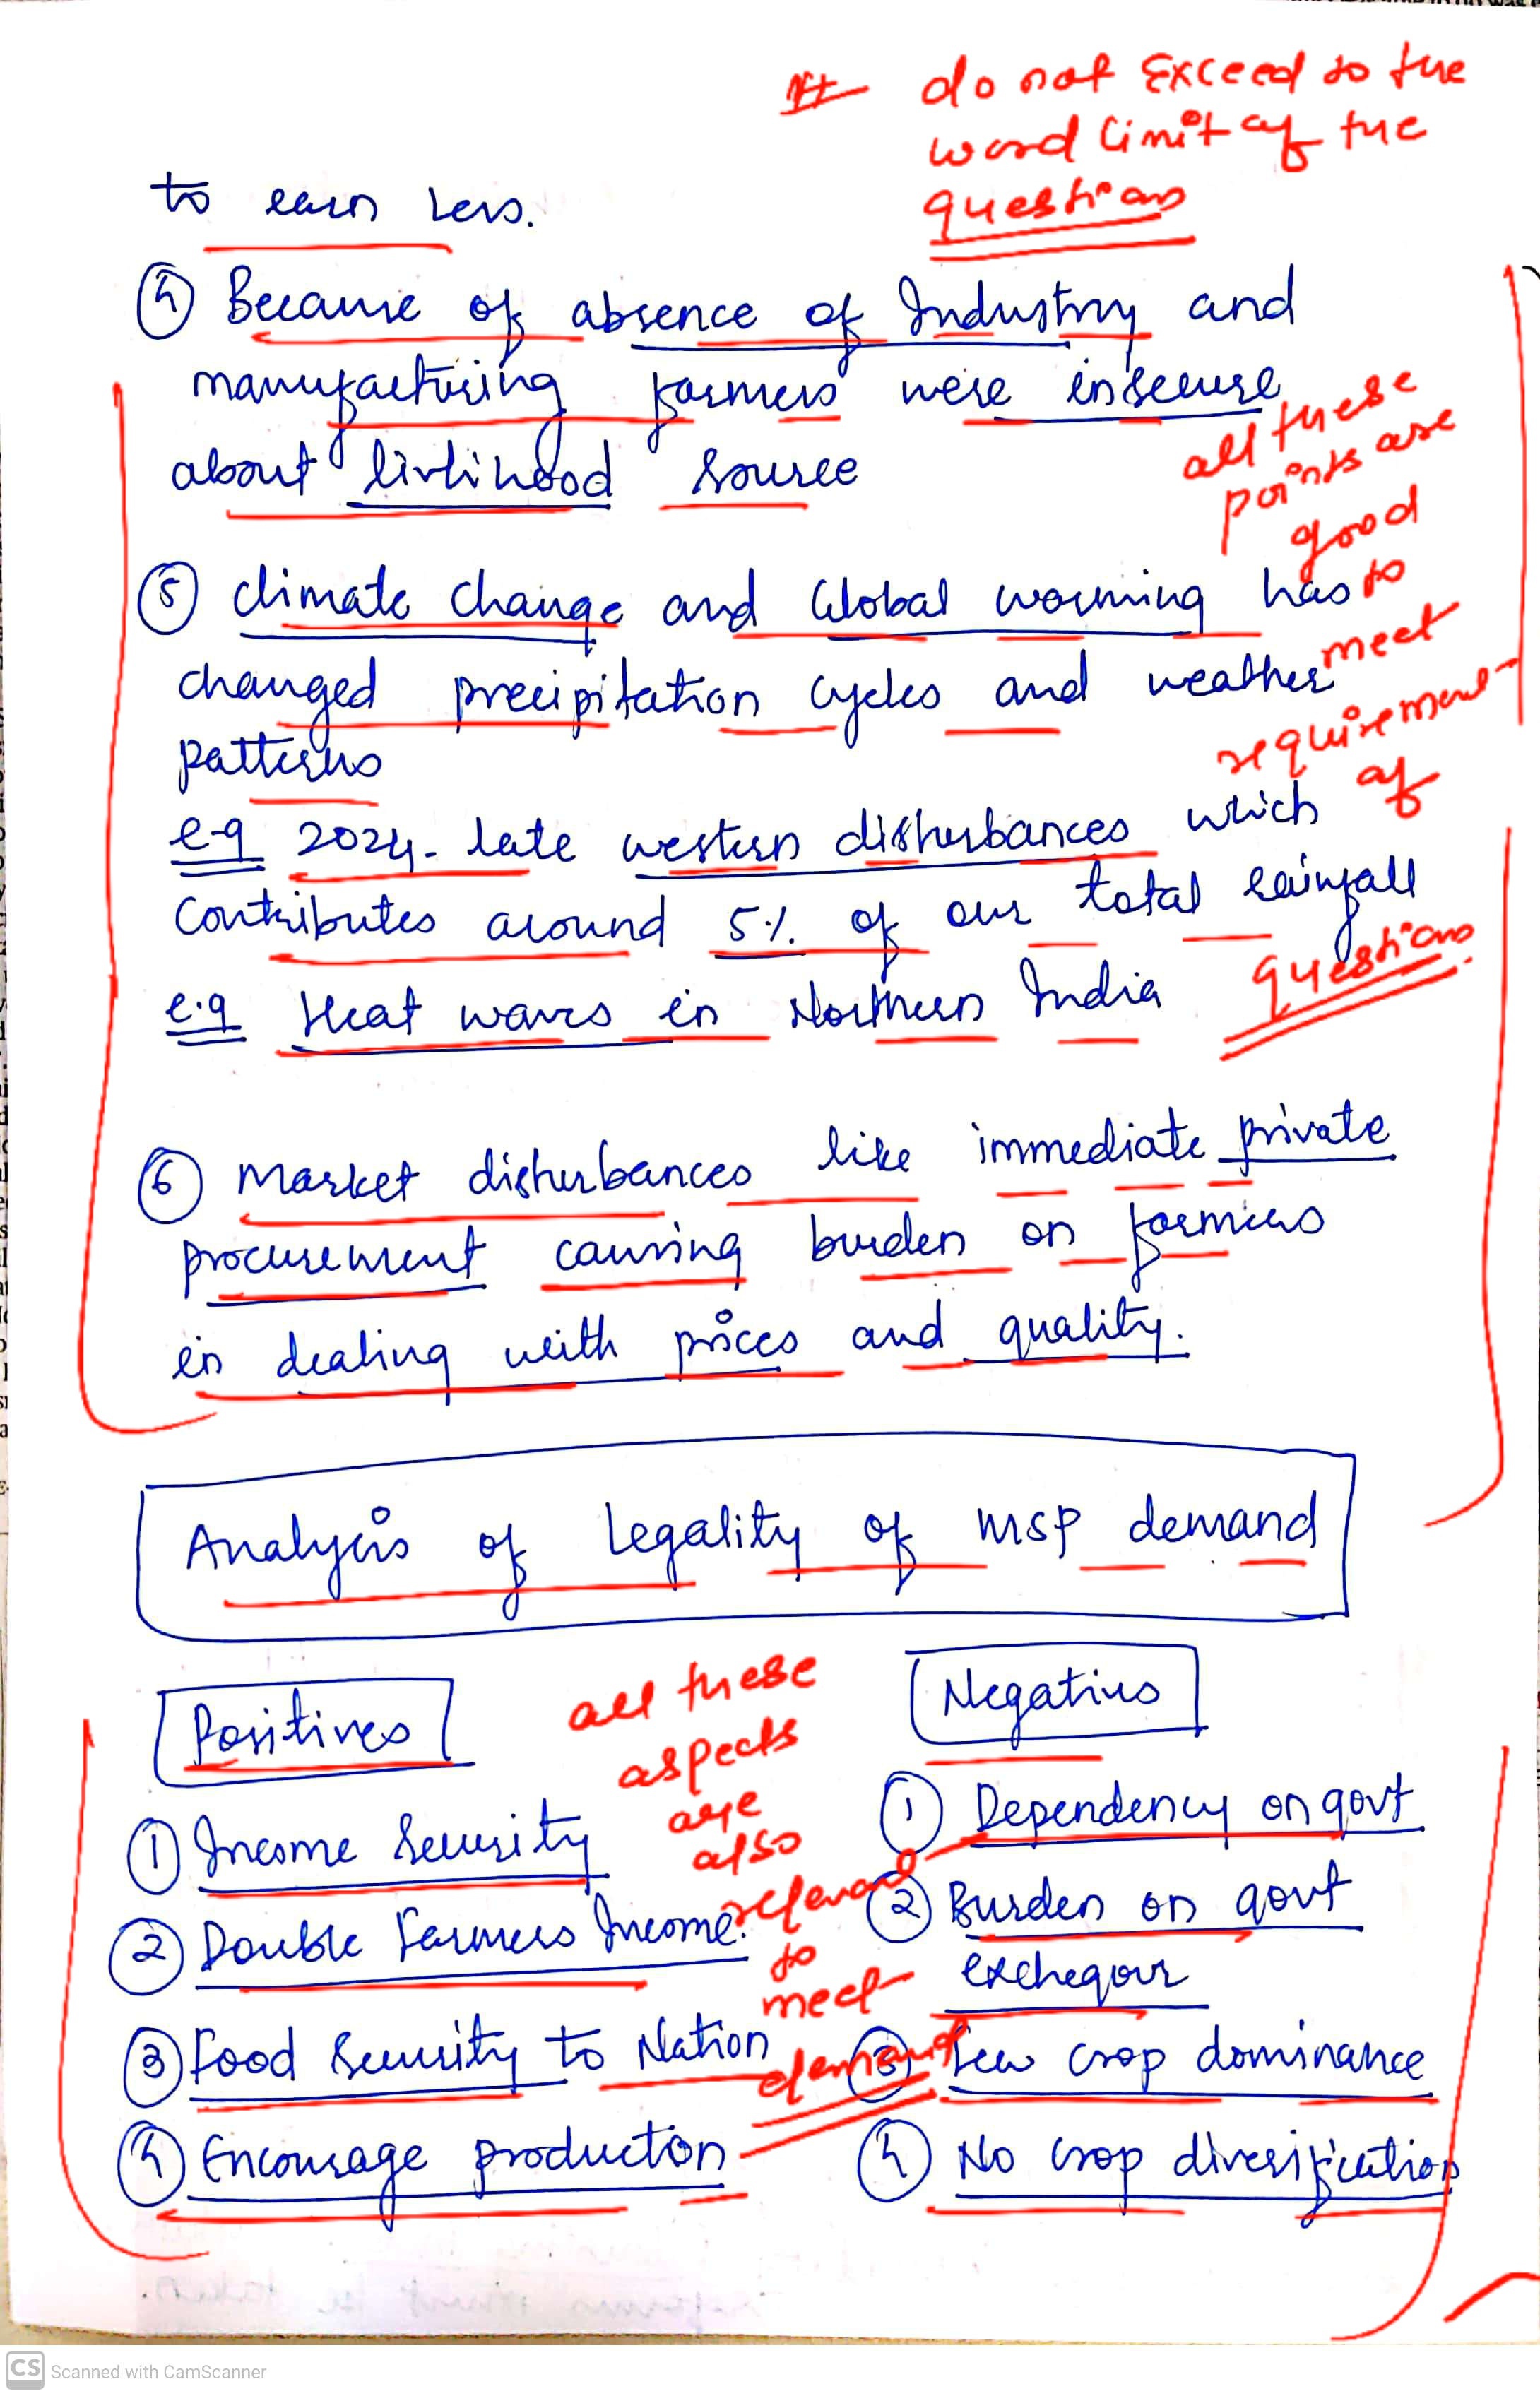 # do not Exceed to the
word limit of the
questions
to earn less.
④ Because of absence of Industry and
manufacturing farmers were insecure
about livlihood source
all these
points are
good
to
meet
requirement
of
questions
⑤ Climate change and Global worming has
changed precipitation cycles and weather
patterns
e.g 2024- late western disturbances which
contributes around 5% of our total rainfall
e.g Heat waves in Northern India
⑥ Market disturbances like immediate private
procurement causing burden on farmers
in dealing with prices and quality.
Analysis of Legality of MSP demand
Positives
Negatives
all these
aspects
are
also
relevant
to
meet
demand
① Income Security
② Double Farmers Income.
③ Food Security to Nation
④ Encourage producton
① Dependency on govt
② Burden on govt
exchequer
③ Few crop dominance
④ No crop diversification
CS Scanned with CamScanner